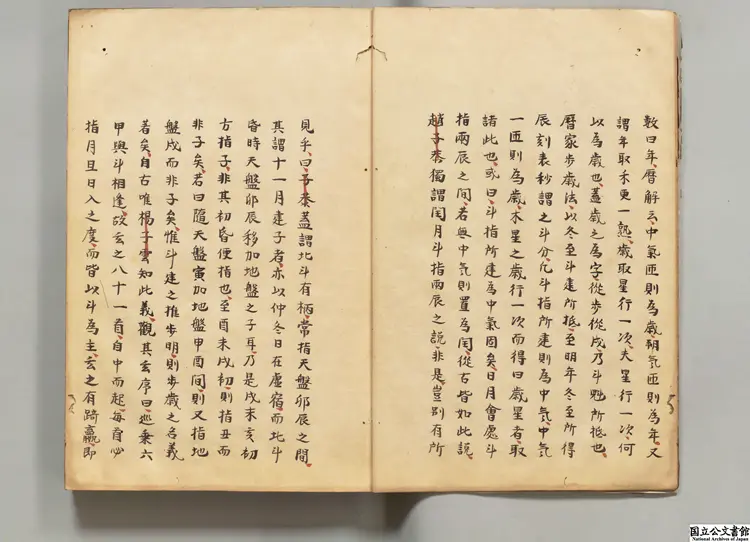 數曰年、曆解云、中氣匝則為歲、朔氣匝則為年、又
謂年取禾更一熟、歲取星行一次、夫星行一次、何
以為歲也、蓋歲之為字從步從戌、乃斗魁所抵也、
曆家步歲法、以冬至斗建所抵、至明年冬至所得
辰刻表秒謂之斗分、凡斗指所建則為中氣、中氣
一匝則為歲、木星之歲行一次而得曰歲星者、取
諸此也、或曰、斗指所建為中氣固矣、日月會處斗
指兩辰之間、若無中氣則置為閏、從古皆如此說、
趙子恭獨謂閏月斗指兩辰之說、非是、豈別有所
見乎、曰、子恭蓋謂北斗有柄、常指天盤卯辰之間、
其謂十一月建子者、亦以仲冬日在虛宿、而北斗
昏時天盤卯辰移加地盤之子耳、乃是戌末亥初
方指子、非其初昏便指也、至酉末戌初、則指丑而
非子矣、若曰隨天盤寅加地盤甲酉間、則又指地
盤戌而非子矣、惟斗建之推步明、則步歲之名義
著矣、自古唯楊子雲知此義、觀其玄序曰、巡乘六
甲與斗相逢、故玄之八十一首、自中而起、每首必
指月且日入之度、而皆以斗為主、玄之有踦贏、即
国立公文書館
National Archives of Japan